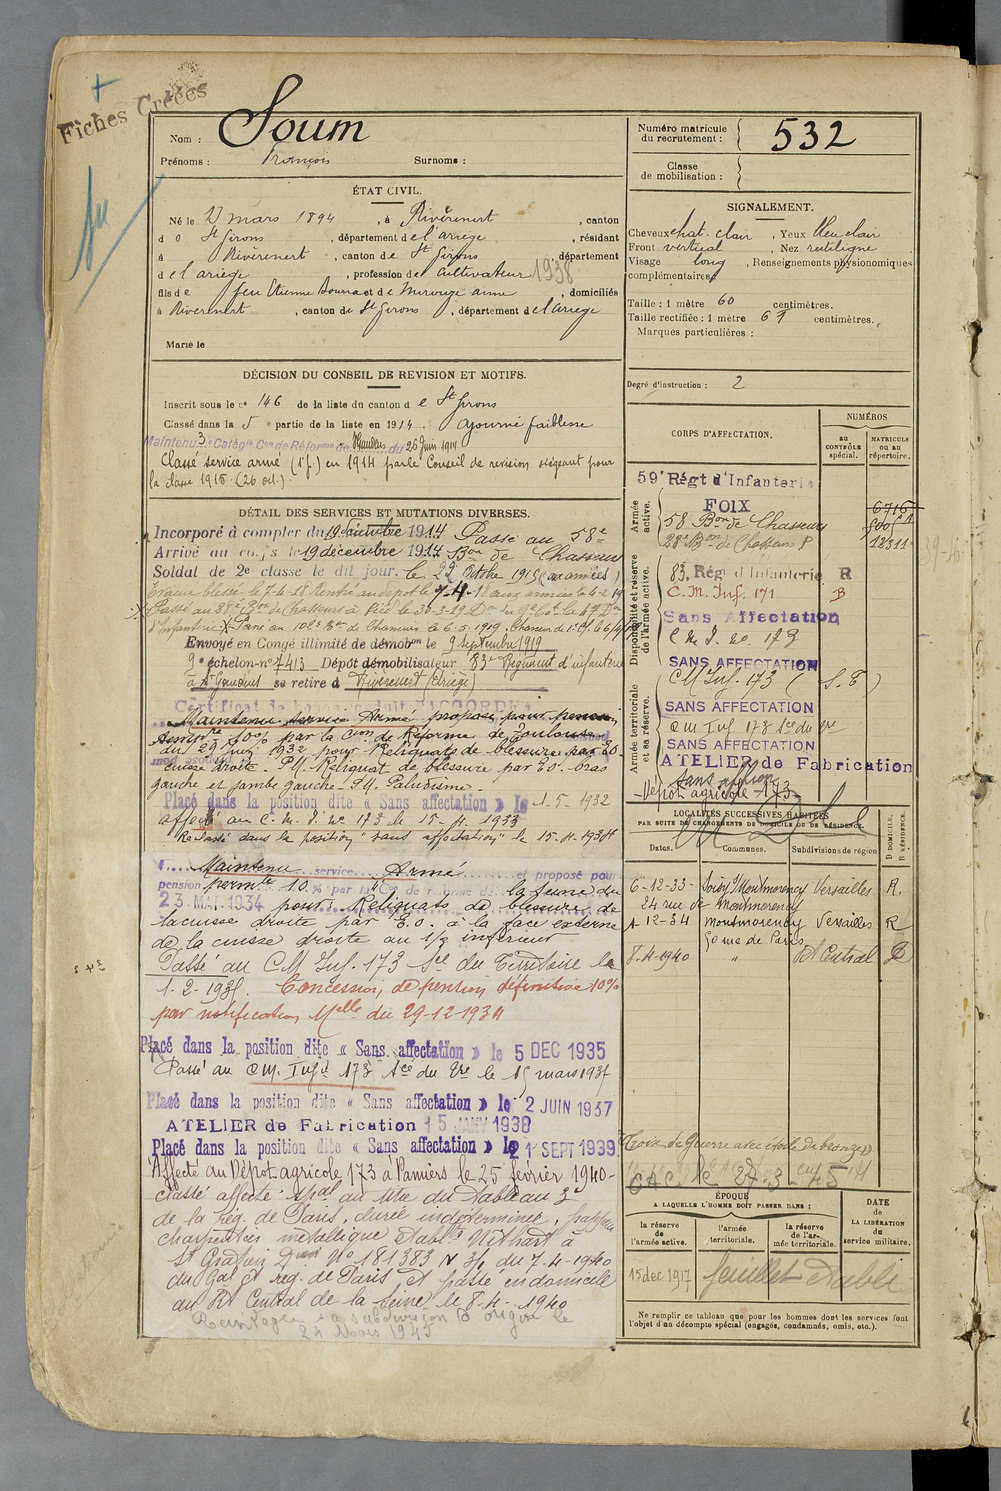 Fiches Créées
Nom : Soum
Prénoms : François Surnoms :
Numéro matricule du recrutement : 532
Classe de mobilisation :
ÉTAT CIVIL.
Né le 27 mars 1894, à Rivèrenert, canton
de St Girons, département de l'ariège, résidant
à Rivèrenert, canton de St Girons, département
de l'ariège, profession de Cultivateur 1938
fils de feu Etienne et de anne, domiciliés
à Rivèrenert, canton de St Girons, département de l'ariège
Marié le
SIGNALEMENT.
Cheveux chat. clair, Yeux bleu clair
Front vertical, Nez rectiligne
Visage long, Renseignements physionomiques
complémentaires
Taille : 1 mètre 60 centimètres.
Taille rectifiée : 1 mètre 61 centimètres.
Marques particulières :
Degré d'instruction : 2
DÉCISION DU CONSEIL DE REVISION ET MOTIFS.
Inscrit sous le no 146 de la liste du canton de St Girons
Classé dans la 5e partie de la liste en 1914. ajourné faiblesse
Maintenu 3e Catégie Con de Réforme de du 26 Juin 1914
Classé service armé (1ère p.) en 1914 par le Conseil de revision siégeant pour
la classe 1915 (26 oct.)
DÉTAIL DES SERVICES ET MUTATIONS DIVERSES.
Incorporé à compter du 19 décembre 1914 Passé au 58e
Arrivé au corps le 19 décembre 1914 Bon de Chasseurs
Soldat de 2e classe le dit jour. le 22 Octobre 1915 (aux armées)
Evacué blessé le 7-4-18 Rentré au dépôt le aux armées le
Passé au Bon de Chasseurs à Pied le 30-3-19
d'Infanterie Passé au 102e Bon de Chasseurs le 6-5-1919. Chasseur de 1e Cl. le
Envoyé en Congé illimité de démobon le 9 septembre 1919
9e échelon - no 7413 Dépôt démobilisateur 83e Régiment d'infanterie
à St Gaudens se retire à Rivèrenert (Ariège)
Maintenu Service Armé proposé pour pension
10% par la Com de Réforme de Toulouse
du 29 Juin 1932 pour Reliquats de blessure par E.O.
cuisse droite. P.M. Reliquat de blessure par E.O. bras
gauche et jambe gauche. P.M. Paludisme.
Placé dans la position dite « Sans affectation » le 1-5-1932
affecté au C. M. I. no 173 le 15-4-1933
Replacé dans la position "sans affectation" le 15-4-1934
Maintenu service Armé et proposé pour
pension permte 10% par la Con de réforme de la Seine du
23 MAI 1934 pour : Reliquats de blessure de
la cuisse droite par E.O. à la face externe
de la cuisse droite au 1/3 inférieur
Passé au C.M. Inf. 173 Sce du Territoire le
1-2-1935. Concession de pension définitive 10%
par notification Melle du 29-12-1934
Placé dans la position dite « Sans affectation » le 5 DEC 1935
Passé au C.M. Inf. 173 Sce du Tre le 15 mars 1937
Placé dans la position dite « Sans affectation » le 2 JUIN 1937
ATELIER de Fabrication 15 JANV 1938
Placé dans la position dite « Sans affectation » le 1 SEPT 1939
Affecté au Dépot agricole 173 à Pamiers le 25 février 1940
Classé affecté spal au titre du Tableau 3
de la rég. de Paris, durée indéterminée, frappeur
charpentes métallique Etabl.
St Gratien Don No 181383 N 3/1 du 7-4-1940
du Gal Ct rég. de Paris et passe en domicile
au Rt Central de la Seine le 8-4-1940
subdivision d'origine le
24 Mars 1945
CORPS D'AFFECTATION.
NUMÉROS
au CONTRÔLE spécial.
MATRICULE ou au répertoire.
Armée active.
59e Régt d'Infanterie
FOIX 6716
58 Bon de Chasseurs
28e Bon de Chasseurs P 12311
Disponibilité et réserve de l'armée active.
83. Régt d'Infanterie R
C. M. Inf. 171 B
Sans Affectation
C. M. I. no 173
SANS AFFECTATION
Armée territoriale et sa réserve.
C M Inf. 173 (S.T)
SANS AFFECTATION
C M Inf 173 Sce du Tre
SANS AFFECTATION
ATELIER de Fabrication
Sans affon
Dépot agricole 173
LOCALITÉS SUCCESSIVES HABITÉES
PAR SUITE DE CHANGEMENTS DE DOMICILE OU DE RÉSIDENCE.
Dates. Communes. Subdivisions de région D DOMICILE, R RÉSIDENCE.
6-12-33 Soisy s/ Montmorency Versailles R.
24 rue de Montmorency
1-12-34 Montmorency Versailles R
50 rue de Paris
8-4-1940 " Rt Central D
Croix de Guerre avec étoile de bronze
CAC. le 27-3-45
ÉPOQUE
A LAQUELLE L'HOMME DOIT PASSER DANS :
la réserve de l'armée active. l'armée territoriale. la réserve de l'armée territoriale.
DATE DE LA LIBÉRATION du service militaire.
15 dec 1917 feuillet établi
Ne remplir ce tableau que pour les hommes dont les services font
l'objet d'un décompte spécial (engagés, condamnés, omis, etc.).